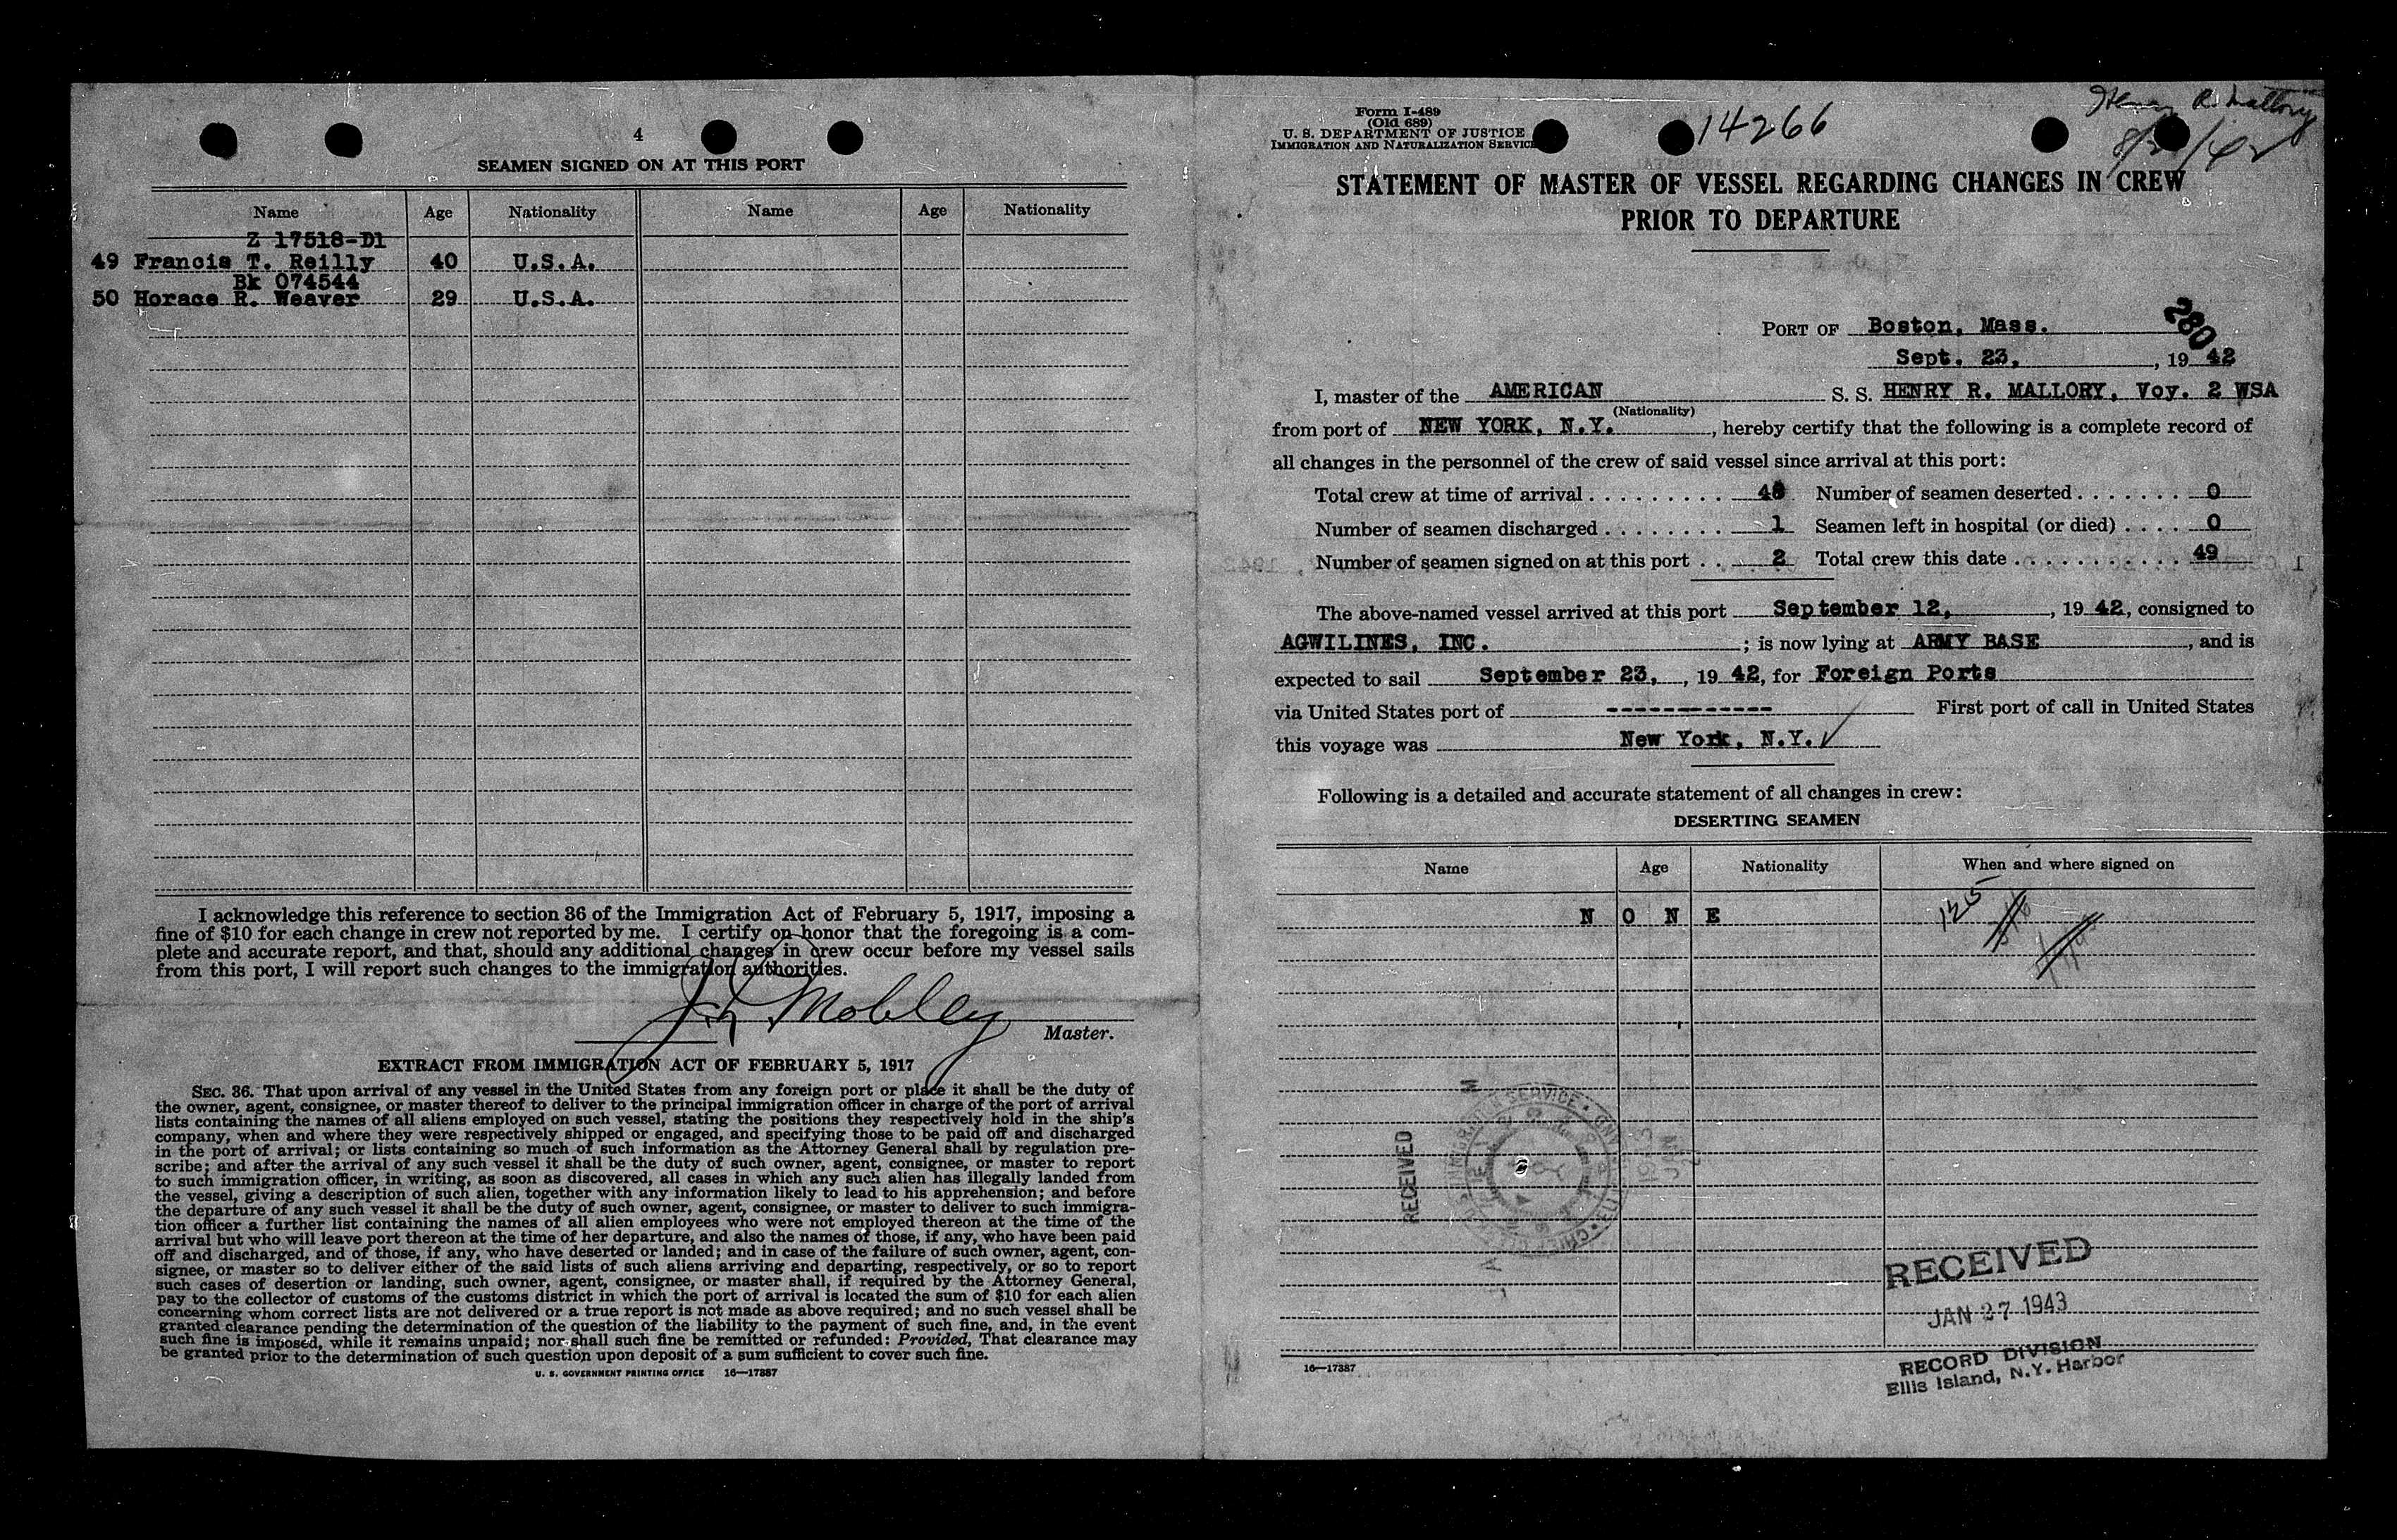 4
SEAMEN SIGNED ON AT THIS PORT
Name Age Nationality Name Age Nationality
Z 17518-D1
49 Francis T. Reilly 40 U.S.A.
Bk 074544
50 Horace R. Weaver 29 U.S.A.
I acknowledge this reference to section 36 of the Immigration Act of February 5, 1917, imposing a
fine of $10 for each change in crew not reported by me. I certify on honor that the foregoing is a com-
plete and accurate report, and that, should any additional changes in crew occur before my vessel sails
from this port, I will report such changes to the immigration authorities.
J. L. Mobley
Master.
EXTRACT FROM IMMIGRATION ACT OF FEBRUARY 5, 1917
SEC. 36. That upon arrival of any vessel in the United States from any foreign port or place it shall be the duty of
the owner, agent, consignee, or master thereof to deliver to the principal immigration officer in charge of the port of arrival
lists containing the names of all aliens employed on such vessel, stating the positions they respectively hold in the ship's
company, when and where they were respectively shipped or engaged, and specifying those to be paid off and discharged
in the port of arrival; or lists containing so much of such information as the Attorney General shall by regulation pre-
scribe; and after the arrival of any such vessel it shall be the duty of such owner, agent, consignee, or master to report
to such immigration officer, in writing, as soon as discovered, all cases in which any such alien has illegally landed from
the vessel, giving a description of such alien, together with any information likely to lead to his apprehension; and before
the departure of any such vessel it shall be the duty of such owner, agent, consignee, or master to deliver to such immigra-
tion officer a further list containing the names of all alien employees who were not employed thereon at the time of the
arrival but who will leave port thereon at the time of her departure, and also the names of those, if any, who have been paid
off and discharged, and of those, if any, who have deserted or landed; and in case of the failure of such owner, agent, con-
signee, or master so to deliver either of the said lists of such aliens arriving and departing, respectively, or so to report
such cases of desertion or landing, such owner, agent, consignee, or master shall, if required by the Attorney General,
pay to the collector of customs of the customs district in which the port of arrival is located the sum of $10 for each alien
concerning whom correct lists are not delivered or a true report is not made as above required; and no such vessel shall be
granted clearance pending the determination of the question of the liability to the payment of such fine, and, in the event
such fine is imposed, while it remains unpaid; nor shall such fine be remitted or refunded: Provided, That clearance may
be granted prior to the determination of such question upon deposit of a sum sufficient to cover such fine.
U. S. GOVERNMENT PRINTING OFFICE 16—17887
Form I-489
(Old 689)
U. S. DEPARTMENT OF JUSTICE
IMMIGRATION AND NATURALIZATION SERVICE
14266
Henry R. Mallory
STATEMENT OF MASTER OF VESSEL REGARDING CHANGES IN CREW
PRIOR TO DEPARTURE
280
PORT OF Boston, Mass.
Sept. 23, , 19 42
I, master of the AMERICAN S. S. HENRY R. MALLORY, Voy. 2 WSA
(Nationality)
from port of NEW YORK, N.Y. , hereby certify that the following is a complete record of
all changes in the personnel of the crew of said vessel since arrival at this port:
Total crew at time of arrival . . . . . . . . . 48 Number of seamen deserted . . . . . . . 0
Number of seamen discharged . . . . . . . . 1 Seamen left in hospital (or died) . . . . 0
Number of seamen signed on at this port . . 2 Total crew this date . . . . . . . . . . . 49
The above-named vessel arrived at this port September 12, , 19 42, consigned to
AGWILINES, INC. ; is now lying at ARMY BASE , and is
expected to sail September 23, , 19 42, for Foreign Ports
via United States port of ------------ First port of call in United States
this voyage was New York, N.Y.
Following is a detailed and accurate statement of all changes in crew:
DESERTING SEAMEN
Name Age Nationality When and where signed on
N O N E
125
RECEIVED
RECEIVED
JAN 27 1943
RECORD DIVISION
Ellis Island, N.Y. Harbor
16—17887